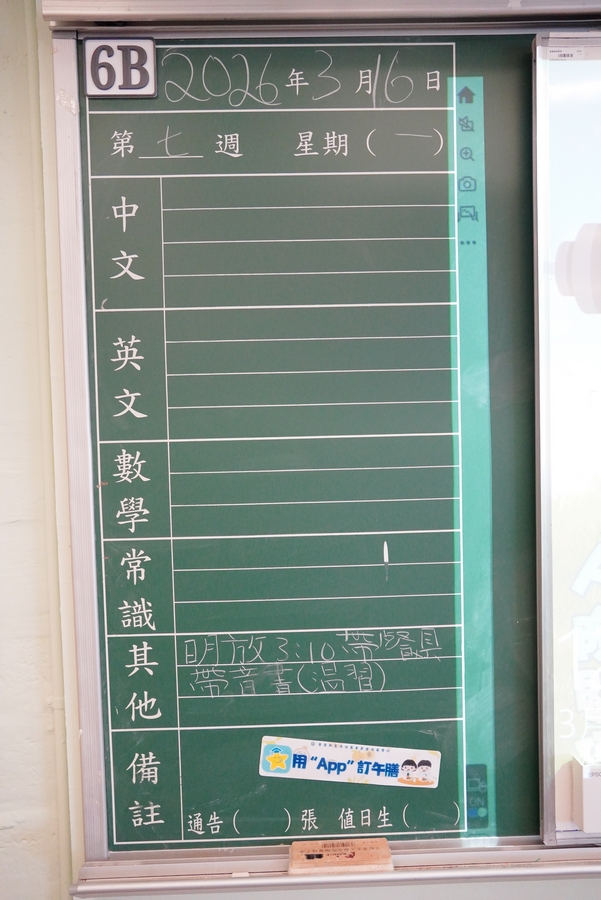 6B 2026年3月16日
第七週 星期(一)
中文
英文
數學
常識
其他
明放3:10帶餐具
帶音書(溫習)
備註
用“App”訂午膳
通告( )張 值日生( )